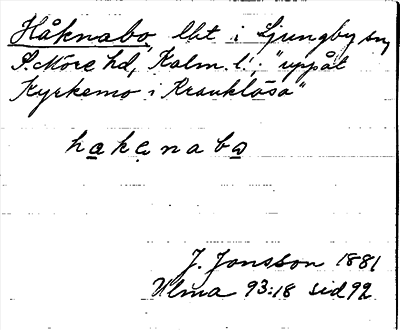 Håknabo, lht i Ljungby sn,
S. Möre hd, Kalm. l.; "uppåt
Kyrkemo i Krankläsa"
hakanabo
J. Jonsson 1881
Ulma 93:18 sid 92